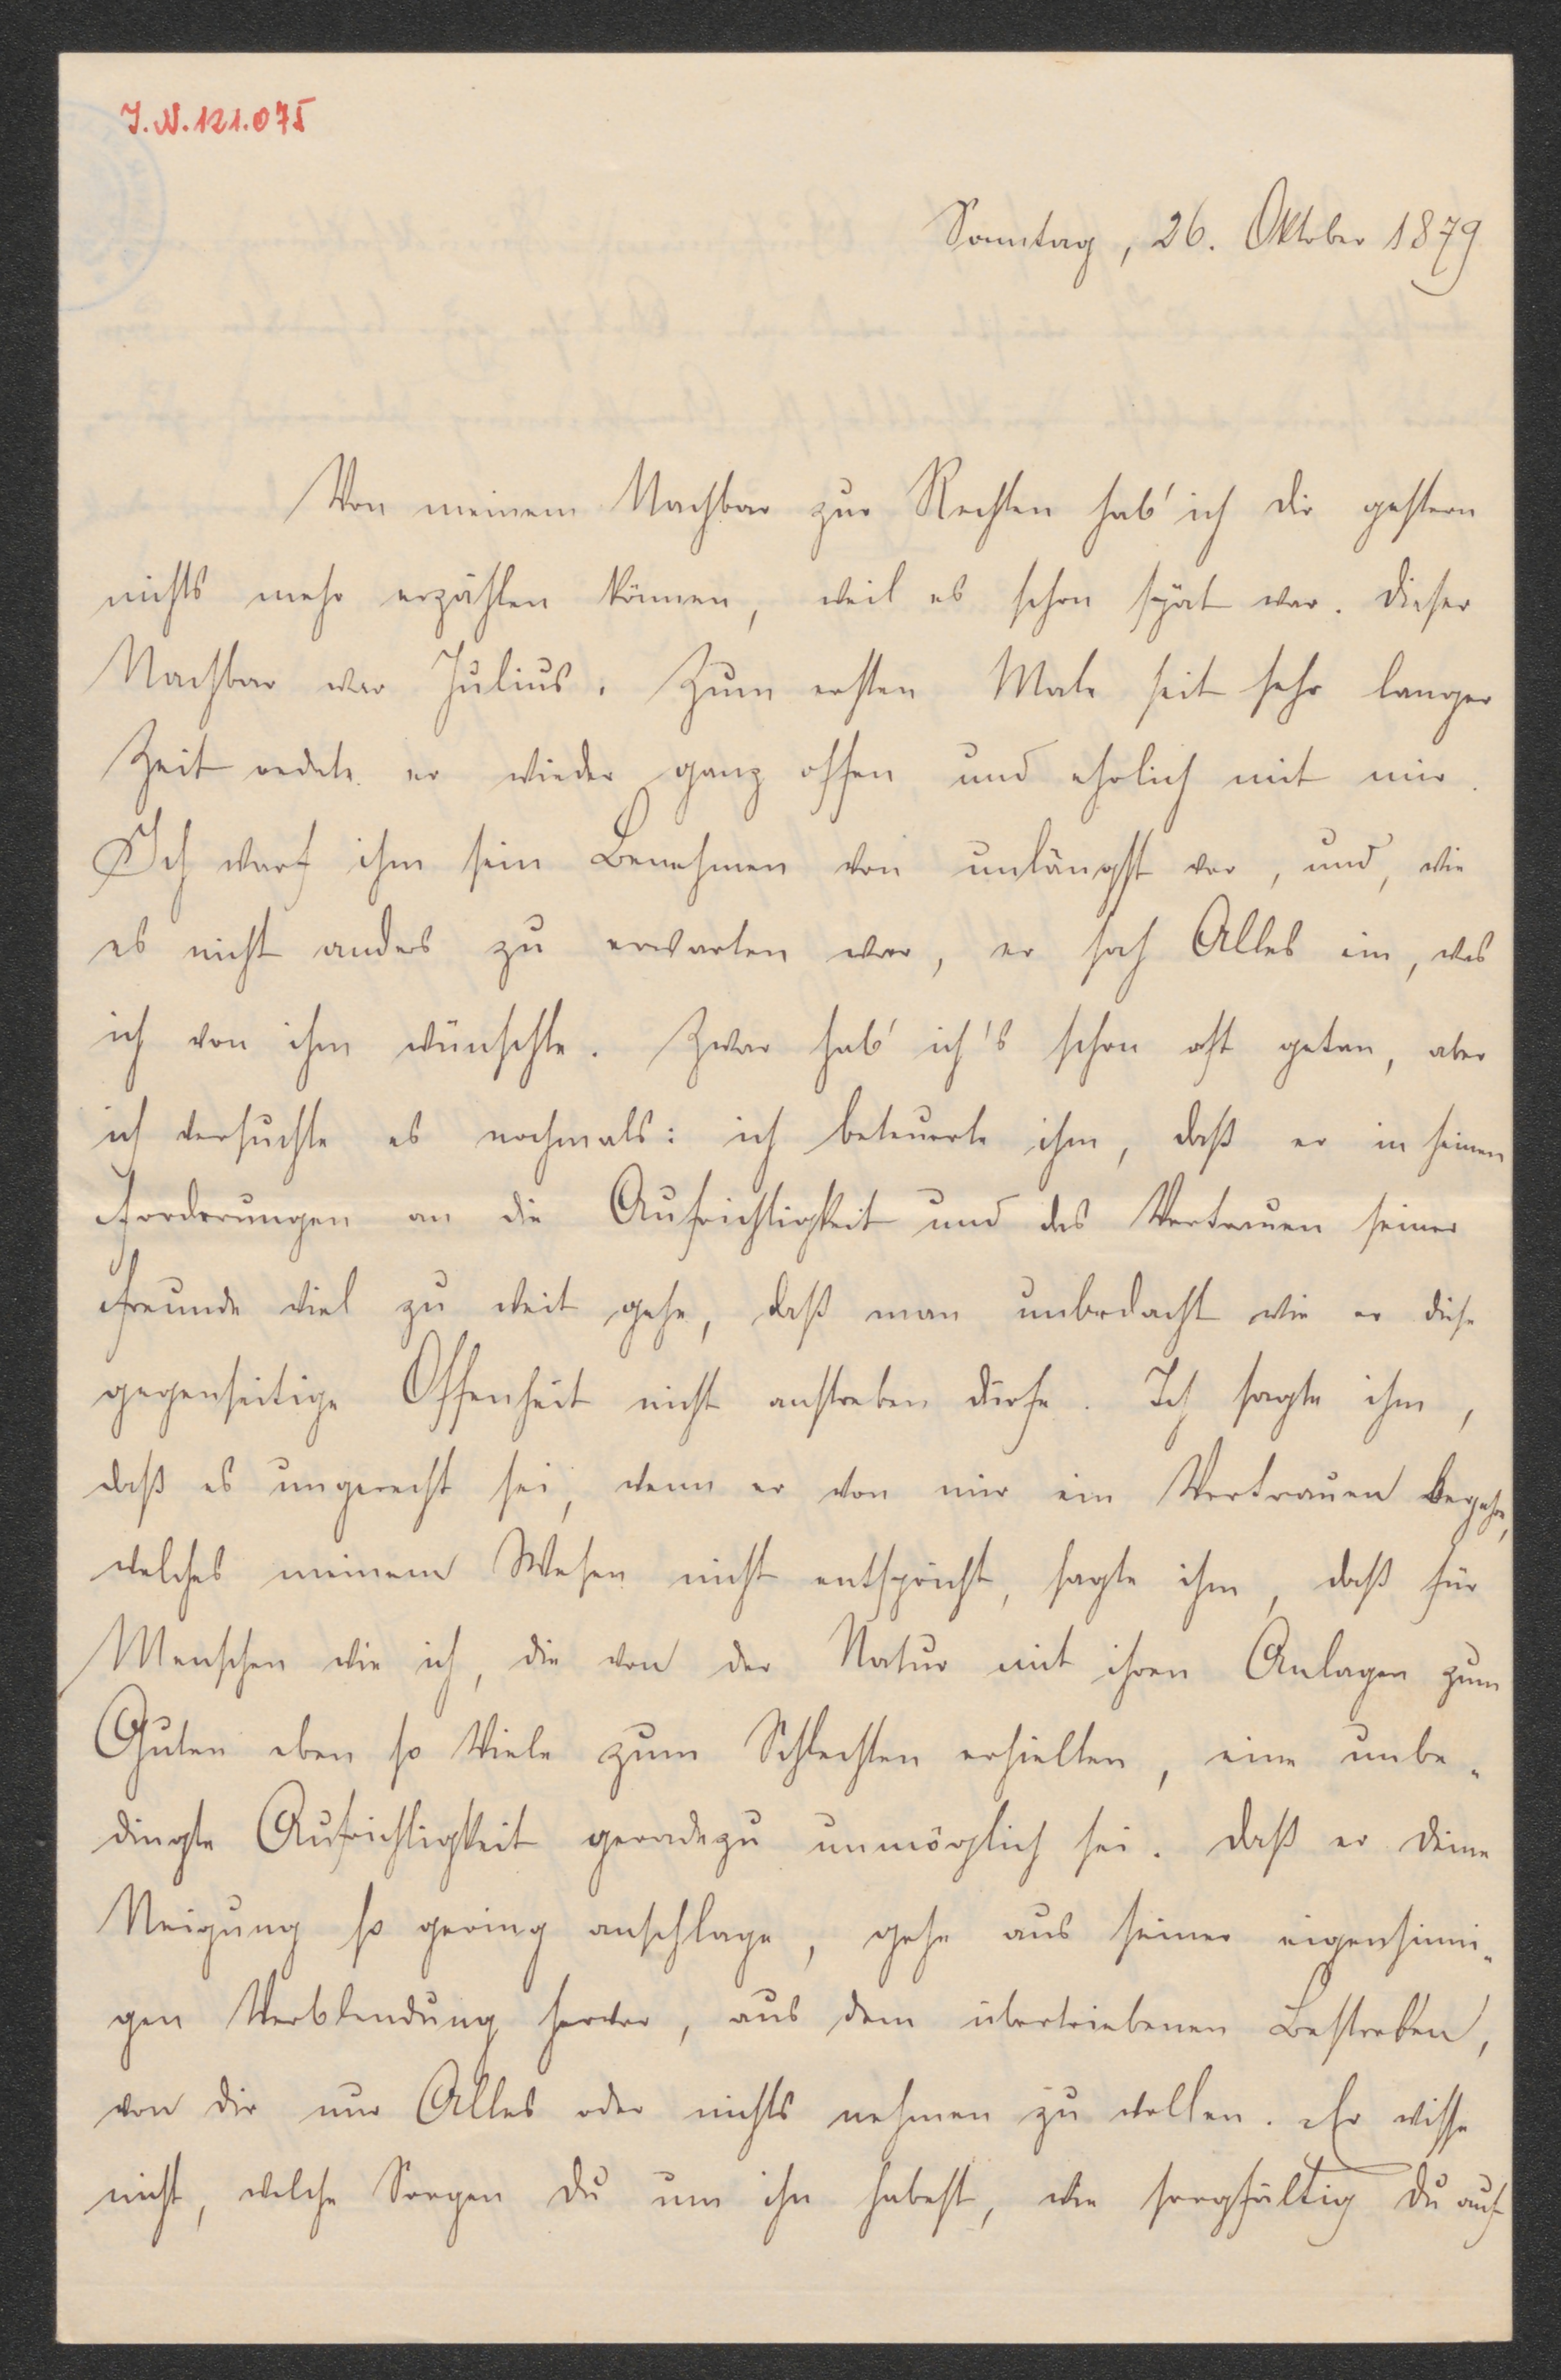 J.N.121.075
Sonntag, 26. Oktober 1879
Von meinem Nachbar zur Rechten hab' ich dir gestern
nichts mehr erzählen können, weil es schon spät war. Dieser
Nachbar war Julius. Zum ersten Male seit sehr langer
Zeit redete er wieder ganz offen und ehrlich mit mir.
Ich warf ihm sein Benehmen von unlängst vor, und, wie
es nicht anders zu erwarten war, er sah Alles ein, was
ich von ihm wünschte. Zwar hab' ich's schon oft getan, aber
ich versuchte es nochmals: ich beteuerte ihm, daß er in seinen
Forderungen an die Aufrichtigkeit und das Vertrauen seiner
Freunde viel zu weit gehe, daß man unbedacht wie er diese
gegenseitige Offenheit nicht anstreben dürfe. Ich sagte ihm,
daß es ungerecht sei, wenn er von mir ein Vertrauen begehre,
welches meinem Wesen nicht entspricht, sagte ihm, daß für
Menschen wie ich, die von der Natur mit ihren Anlagen zum
Guten eben so Viele zum Schlechten erhielten, eine unbe-
dingte Aufrichtigkeit geradezu unmöglich sei. Daß er deine
Neigung so gering anschlage, gehe aus seiner eigensinni-
gen Verblendung hervor, aus dem übertriebenen Bestreben,
von dir nur Alles oder nichts nehmen zu wollen. Er wisse
nicht, welche Sorgen du um ihn habest, wie sorgfältig du auf